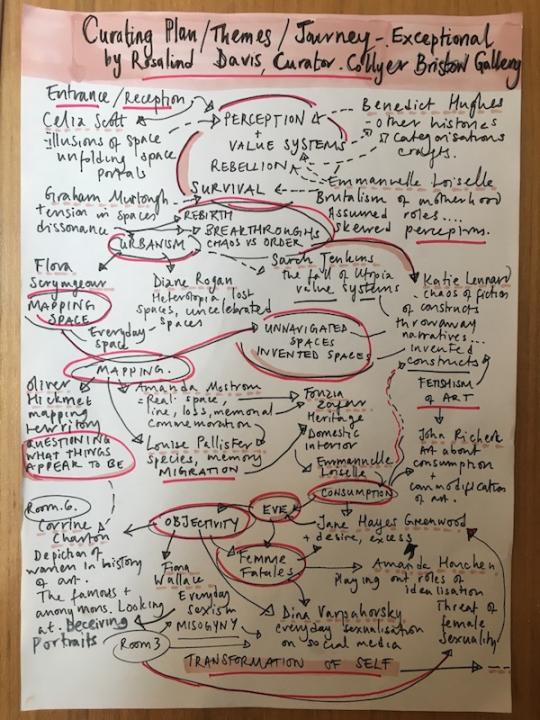 Curating Plan/Themes/Journey - Exceptional
by Rosalind Davis, Curator. Collyer Bristow Gallery
Entrance/Reception
Celia Scott
Illusions of space
unfolding space
portals
PERCEPTION
+
VALUE SYSTEMS
REBELLION
SURVIVAL
Benedict Hughes
- Other histories
Categorisations
crafts.
Emmannuelle Loiselle
Brutalism of motherhood
Assumed roles....
skewed perception.
Graham Murtough
tension in spaces
dissonance
REBIRTH
BREAKTHROUGHS
CHAOS VS ORDER
URBANISM
Flora
Scrymgeour
MAPPING
SPACE
Everyday
space
Diane Rogan
Heterotopia, lost
spaces, uncelebrated
spaces
Sarah Jenkins
the fall of Utopia
value systems
Katie Lennard
chaos of fiction
of constructs
throwaway
narratives...
invented
constructs
UNNAVIGATED
SPACES
INVENTED SPACES
MAPPING.
Oliver
Hickmet
mapping
territory
QUESTIONING
WHAT THINGS
APPEAR TO BE
Amanda Mostrom
Real space,
line, loss, memorial
commemoration
Louise Pallister
species, memory
MIGRATION
Fonzia
Zafeer
Heritage
Domestic
interior
Emmannelle
Loiselle
FETISHISM
of ART
John Richert
Art about
consumption
+
commodification
of art.
CONSUMPTION
Room 6.
Corrine
Charton
Depiction of
women in history
of art.
The famous +
anonymous. Looking
at. Deceiving
Portraits
OBJECTIVITY
EVE
Jane Hayes Greenwood
+ desire, excess
Femme
Fatales
Fiona
Wallace
Everyday
sexism
MISOGYNY
Amanda Honchen
Playing out roles of
idealisation
Threat of
female
sexuality
Dina Varpahovsky
everyday sexualisation
on social media
Room 3
TRANSFORMATION OF SELF